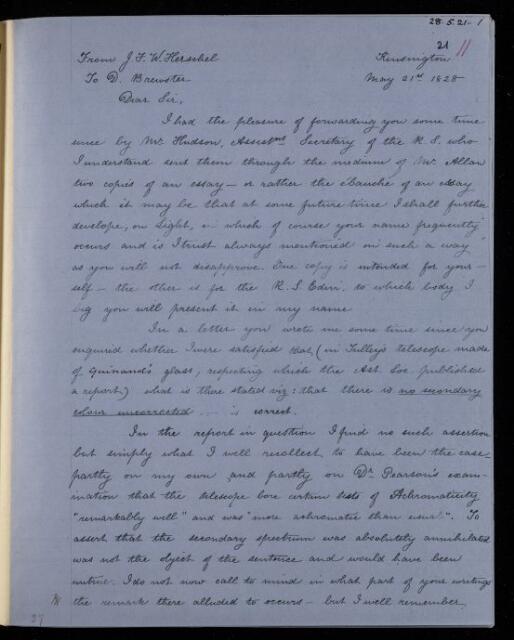 28.5.21-1
21 11
From J. F. W. Herschel Kensington
To D. Brewster May 21st 1828
Dear Sir,
I had the pleasure of forwarding you some time
since by Mr Hudson, Assistant Secretary of the R. S. who
I understand sent them through the medium of Mr. Allan
two copies of an essay — or rather the ebauche of an essay
which it may be that at some future time I shall further
develope, on Light, in which of course your name frequently
occurs and is I trust always mentioned in such a way
as you will not disapprove. One copy is intended for your-
self — the other is for the R. S. Edin. to which body I
beg you will present it in my name
In a letter you wrote me some time since you
enquired whether I were satisfied that, (in Tulley's telescope made
of Guinand's glass, respecting which the Ast. Soc. published
a report,) what is there stated viz: that there is no secondary
colour uncorrected is correct.
In the report in question I find no such assertion
but simply what I well recollect to have been the case
partly on my own and partly on Dr. Pearson's exam-
ination that the telescope bore certain tests of Achromaticity
"remarkably well" and was "more achromatic than usual". To
assert that the secondary spectrum was absolutely annihilated
was not the object of the sentence and would have been
untrue. I do not now call to mind in what part of your writings
the remark there alluded to occurs — but I well remember,
37